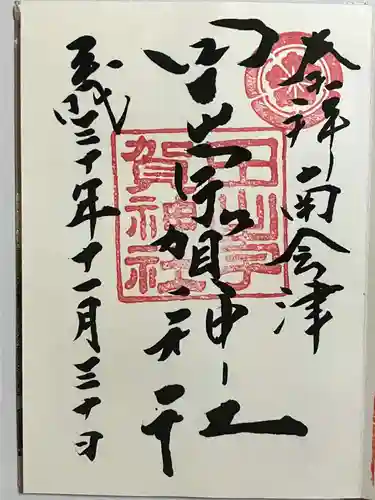 奉拝 南会津
田出宇賀神社
田出宇
賀神社
平成三十年十一月三十日